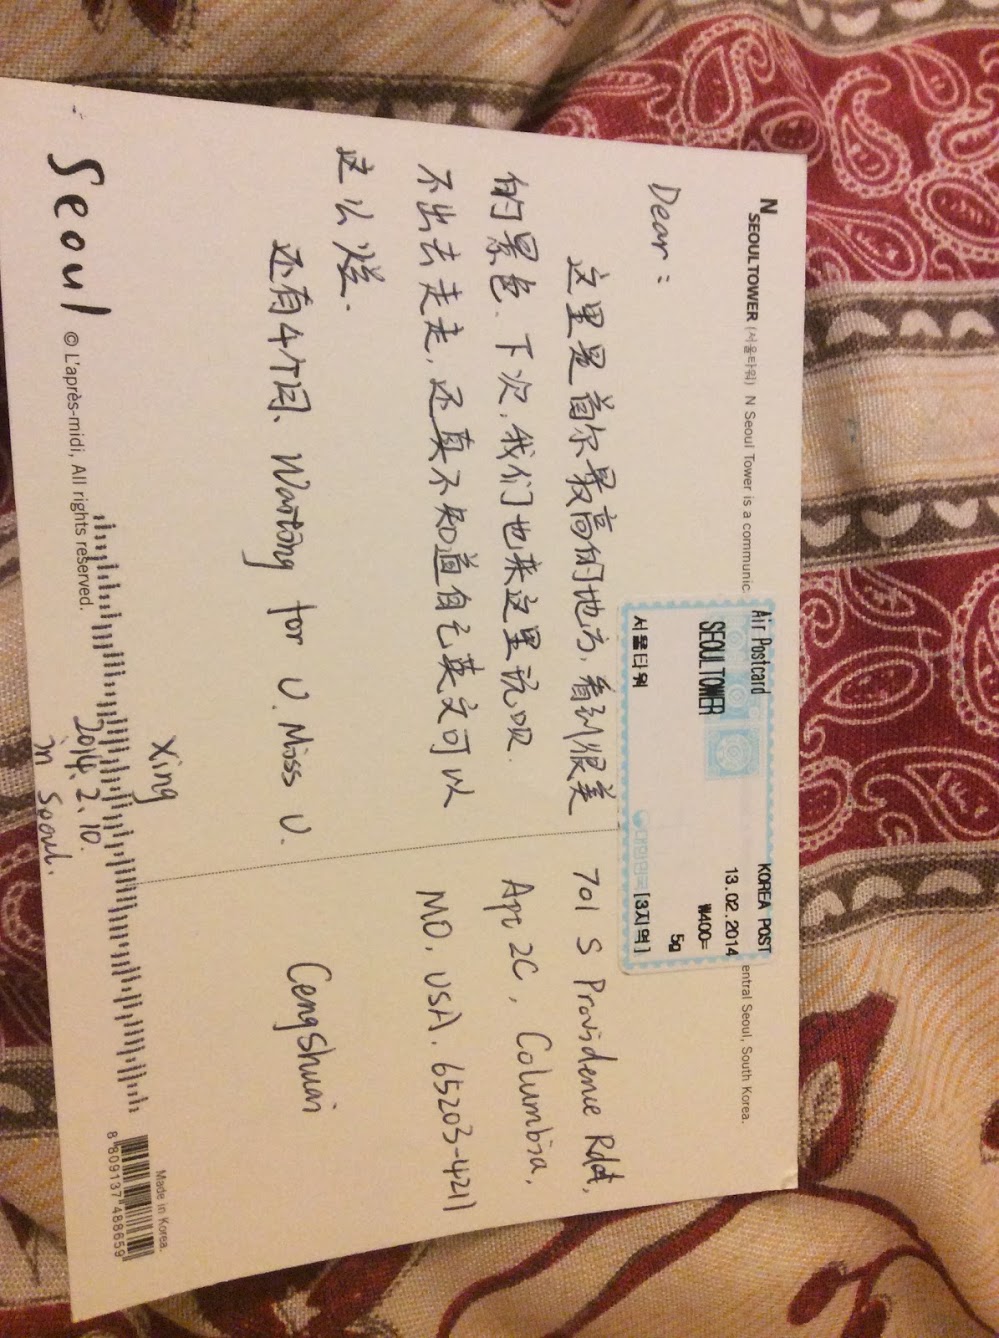 N SEOULTOWER (서울타워) N Seoul Tower is a communic
entral Seoul, South Korea.
Air Postcard
SEOULTOWER
서울타워
KOREA POST
13.02.2014
₩400=
5g
대한민국 [3지역]
Dear:
这里是首尔最高的地方,看到很美
的景色.下次,我们也来这里说呗.
不出去走走,还真不知道自己英文可以
这么烂.
还有4个月、Waiting for U. Miss U.
Xing
2014.2.10.
in Seoul.
701 S Providence Rd,
Apt 2C, Columbia,
MO, USA. 65203-4211
Cengshuai
Seoul © L'après-midi, All rights reserved.
Made in Korea.
8 809137 488659